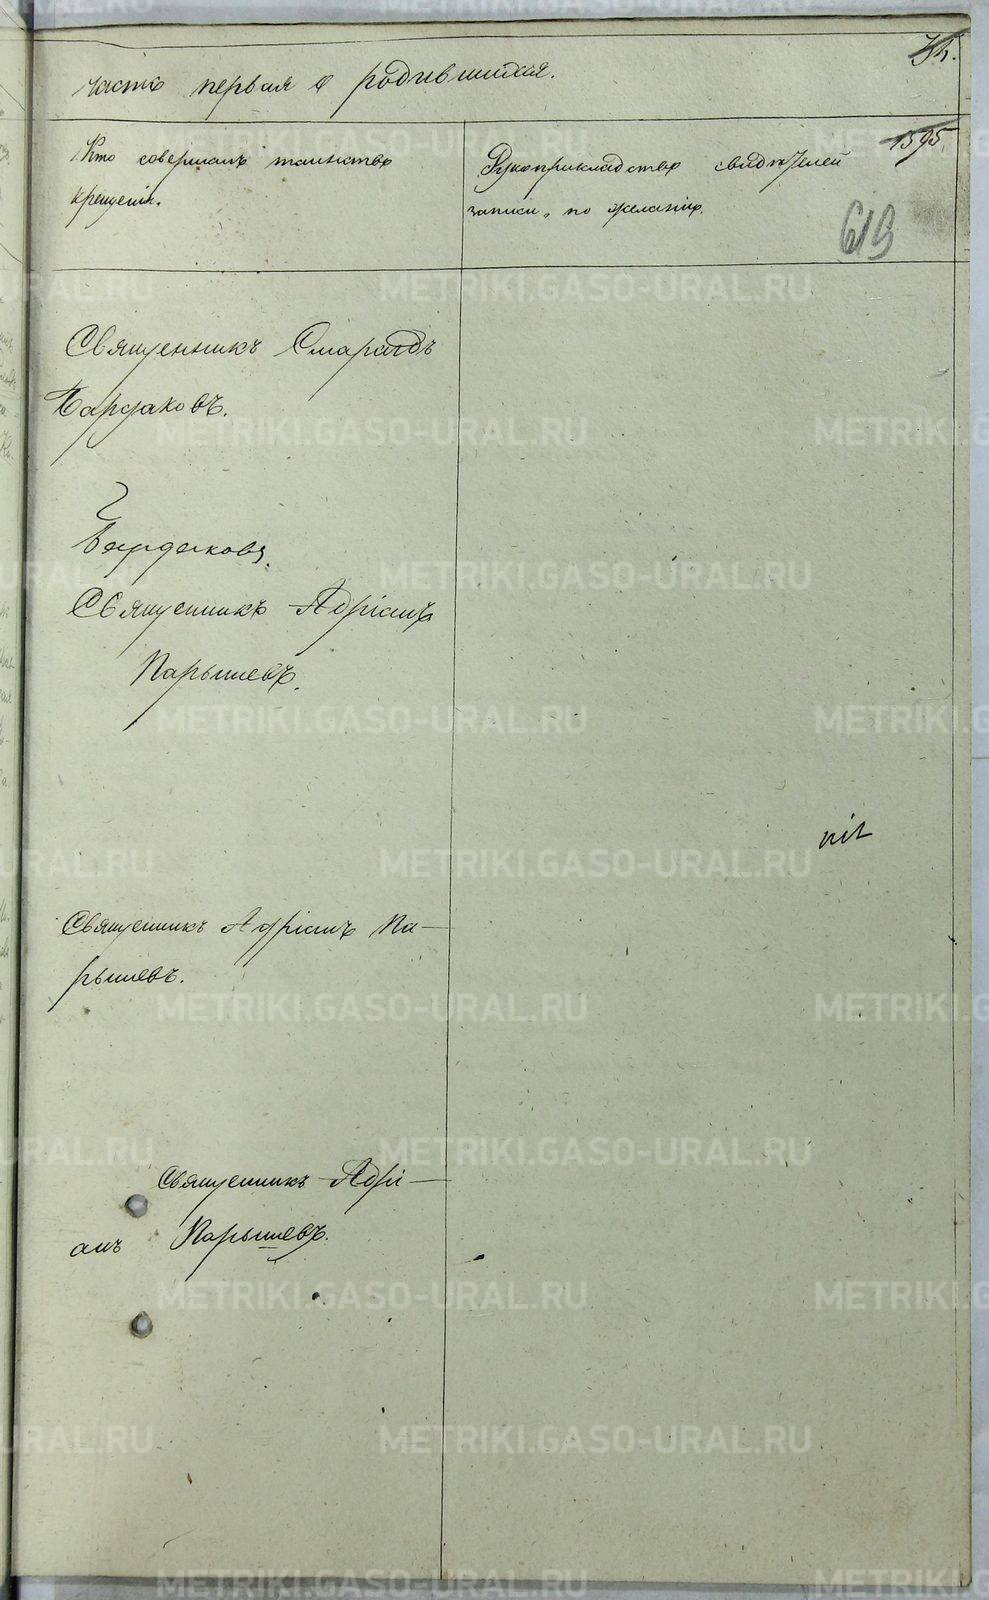 34.
часть первая о родившихся.
1595
Кто совершалъ таинство
крещенія.
Рукоприкладство свидѣтелей
записи, по желанію.
619
Священникъ Смарагдъ
Бардаковъ.
Бардаковъ.
Священникъ Адріанъ
Парышевъ.
Священникъ Адріанъ Па-
рышевъ.
Священникъ Адрі-
анъ Парышевъ.
METRIKI.GASO-URAL.RU